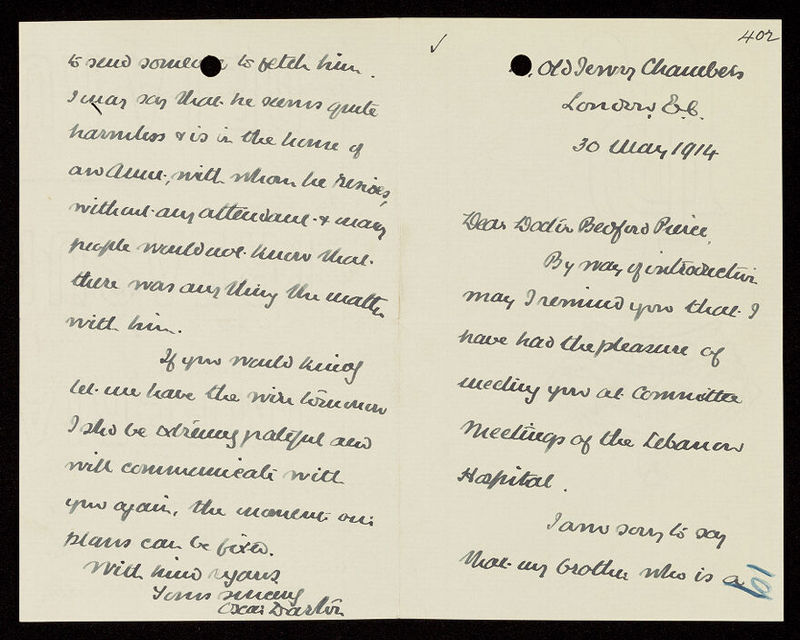 402
Old Jewry Chambers
London, E.C.
30 May 1914
Dear Doctor Bedford Pierce,
By way of introduction
may I remind you that I
have had the pleasure of
meeting you at Committee
Meetings of the Lebanon
Hospital.
I am sorry to say
that my brother who is a
to send someone to fetch him.
I may say that he seems quite
harmless & is in the home of
an Aunt, with whom he resides,
without any attendant & many
people would not know that
there was anything the matter
with him.
If you would kindly
let me have the wire tomorrow
I shd be extremely grateful and
will communicate with
you again, the moment our
plans can be fixed.
With kind regards
Yours sincerely
Oscar Darton